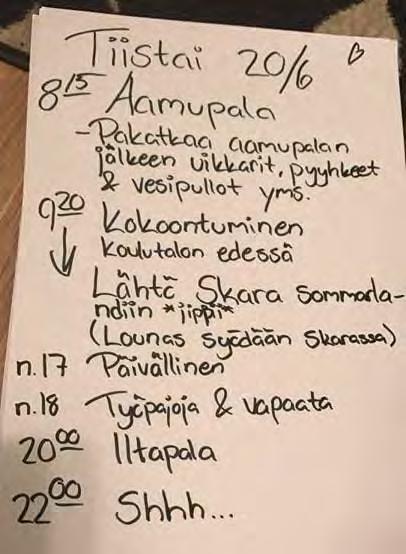 Tiistai 20/6
8 15 Aamupala
-Pakatkaa aamupalan
jälkeen uikkarit, pyyhkeet
& vesipullot yms.
9 20 Kokoontuminen
koulutalon edessä
Lähtö Skara Sommarla-
ndiin *jippi*
(Lounas syödään Skarassa)
n.17 Päivällinen
n.18 Työpajoja & vapaata
20 00 Iltapala
22 00 Shhh...